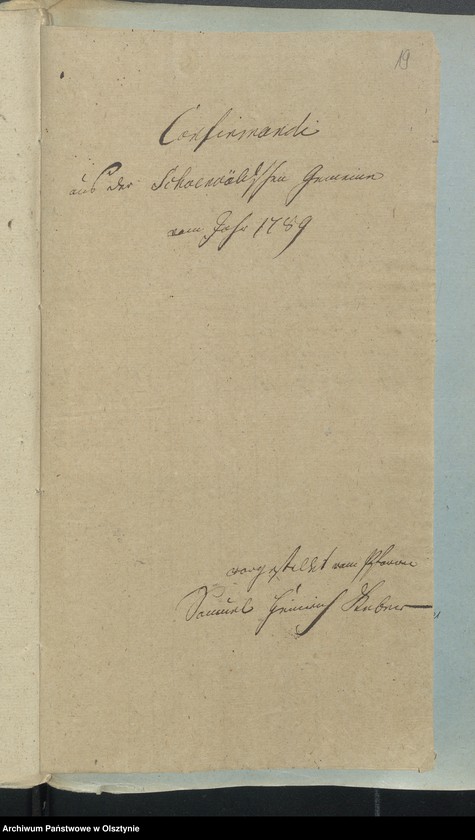 19
Confirmandi
aus der Schoenwäldschen Gemeine
vom Jahr 1789
vorgestellet vom Pfarrer
Samuel Heinrich
Archiwum Państwowe w Olsztynie